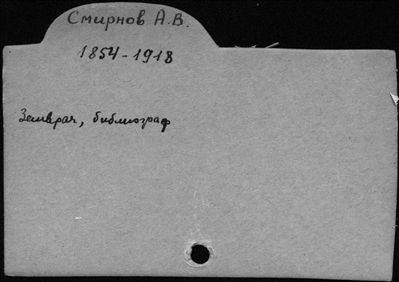 Смирнов А.В.
1854-1918
Земврач, библиограф